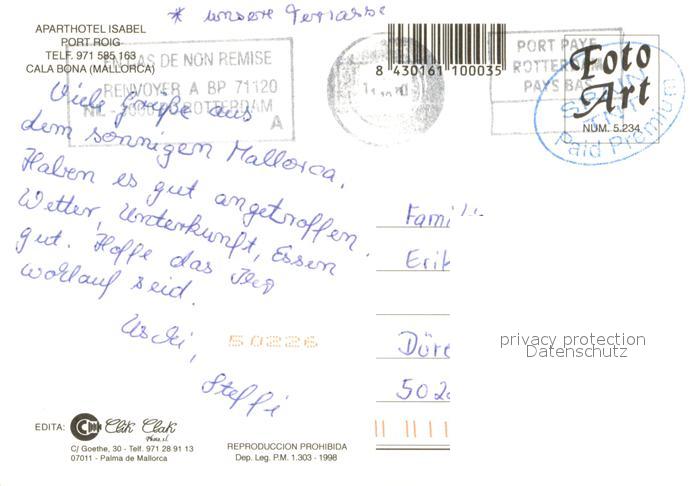 * unsere Terrasse
APARTHOTEL ISABEL
PORT ROIG
TELF. 971 585 163
CALA BONA (MALLORCA)
EN CAS DE NON REMISE
RENVOYER A BP 71120
ROTTERDAM
A
8 430161 100035
PORT PAYE
ROTTERDAM
PAYS BAS
Foto
Art
NUM. 5.234
SPAIN
Paid Premium
Viele Grüße aus
dem sonnigen Mallorca.
Haben es gut angetroffen.
Wetter, Unterkunft, Essen
gut. Hoffe das Ihr
wohlauf seid.
Uschi,
Steffi
50226
Famili
Erik
Düre
502
privacy protection
Datenschutz
EDITA:
Clik Clak
Photo, s.l.
C/ Goethe, 30 - Telf. 971 28 91 13
07011 - Palma de Mallorca
REPRODUCCION PROHIBIDA
Dep. Leg. P.M. 1.303 - 1998